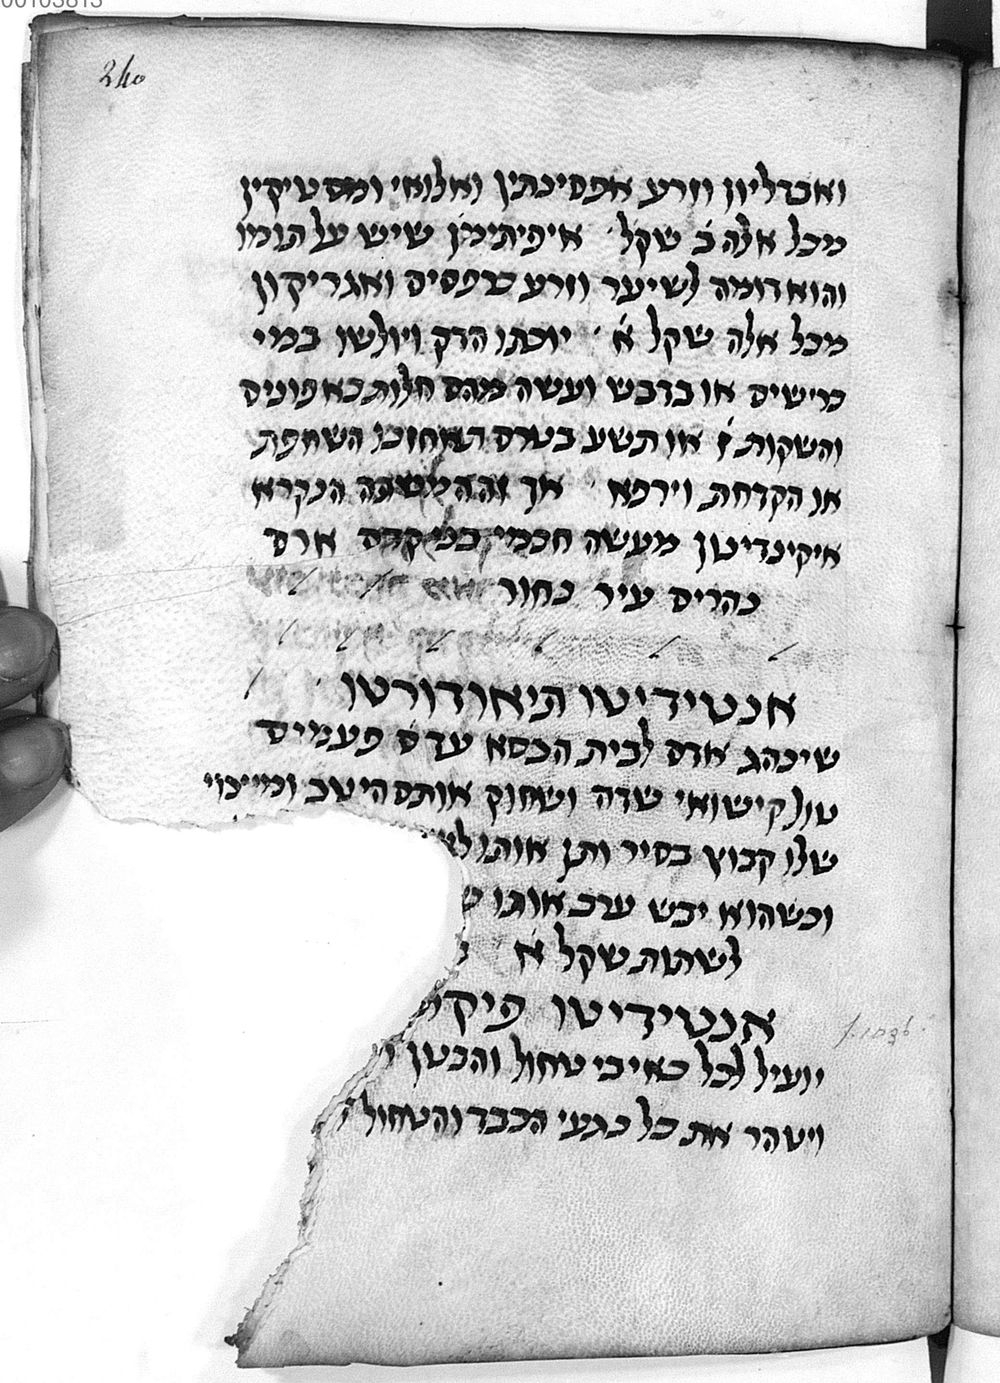 240
ואבדליון וזרע אפסינתין ואלואי ומסטיקין
מכל אלה ב שקל איפיתימון שיש על תומו
והוא דומה לשיער וזרע כרפסיס ואגריקון
מכל אלה שקל א יוכתו הדק ויולשו במי
כרישים או בדבש ועשה מהם חלות כאפונים
והשקות ז או תשע בטרם תאחזנו השחפת
או הקדחת וירפא אך זה המשקה הנקרא
איקינדיטון מעשה חכמי בני קדם ארם
נהרים עיר נחור
אנטידיטו תיאודורטו
שינהג אדם לבית הכסא עד ס פעמים
טול קישואי שדה ושחוק אותם היטב ומי
שלו קבוץ בסיר ותן אותו
וכשהוא יבש ערב אותו
לשתות שקל א
אנטידיטו
יועיל לכל כאיבי טחול והבטן
ויטהר את כל נגעי הכבד והטחול